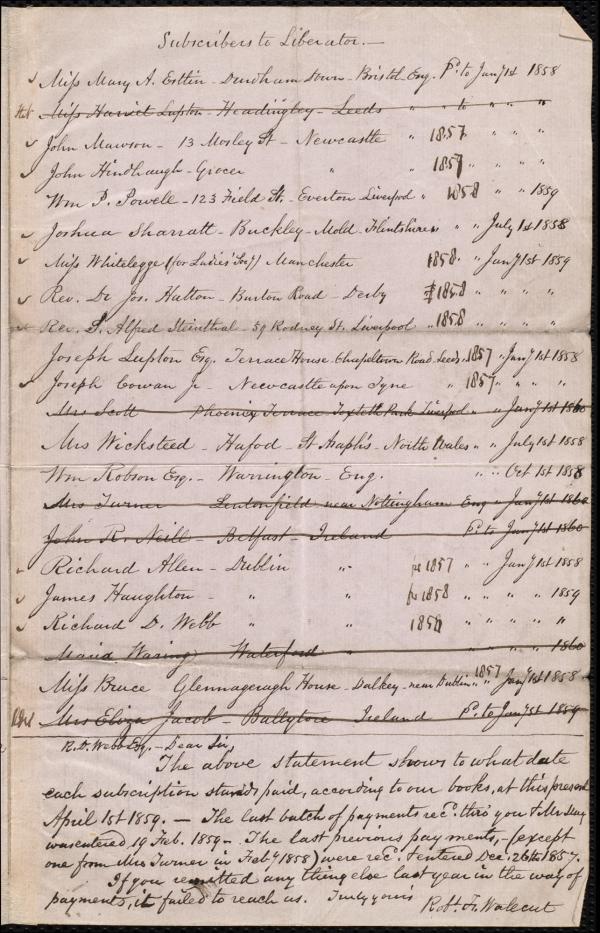 Subscribers to Liberator.—
Miss Mary A. Estlin - Durdham Down - Bristol - Eng. Pd. to Jany 1st 1858
Miss Harriet Lupton - Headingley - Leeds " to " " "
John Mawson - 13 Mosley St - Newcastle " 1857 " " "
John Hindhaugh - Grocer " " 1857 " " "
Wm P. Powell - 123 Field St. - Everton Liverpool " 1858 " " 1859
Joshua Sharratt - Buckley - Mold - Flintshire " " July 1st 1858
Miss Whitelegge (for Ladies' Soc.) Manchester 1858 " Jany 1st 1859
Rev. Dr Jos. Hutton - Burton Road - Derby 1858 " " " "
Rev. S. Alfred Steinthal - 59 Rodney St. Liverpool " 1858 " " " "
Joseph Lupton Esq. Terrace House - Chapeltown Road - Leeds. 1857 " Jany 1st 1858
Joseph Cowan Jr Newcastle upon Tyne " 1857 " " " "
Mrs Scott Phoenix Terrace Toxteth Park Liverpool " " Jany 1st 1860
Mrs Wicksteed - Hafod - St Asaph's - North Wales " " July 1st 1858
Wm Robson Esq. - Warrington - Eng. " " Oct 1st 1858
Mrs Turner Lentonfield near Nottingham Eng " Jany 1st 1860
John R. Neill - Belfast - Ireland Pd. to Jany 1st 1860
Richard Allen - Dublin " 1857 " " Jany 1st 1858
James Haughton - " " 1858 " " " 1859
Richard D. Webb " " 1858 " " " "
Maria Waring Waterford " " " " 1860
Miss Bruce Glennageragh House - Dalkey - near Dublin 1857 " " Jany 1st 1858
Mrs Eliza Jacob - Ballytore Ireland Pd. to Jany 1st 1859
R. D. Webb Esq. - Dear Sir,
The above statement shows to what date
each subscription stands paid, according to our books, at this present
April 1st 1859. — The last batch of payments recd. thro' you & Mr May
was entered 19 Feb. 1859. The last previous payments, - (except
one from Mrs Turner in Feby 1858) were recd. & entered Dec. 26th 1857.
If you remitted any thing else last year in the way of
payments, it failed to reach us. Truly yours
Robt. F. Walcutt